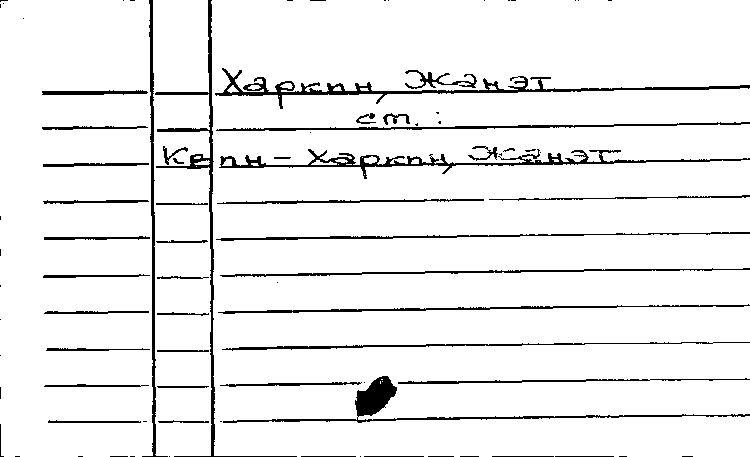 Харкин, Жанэт
ст. :
Кепн-Харкин, Жанэт